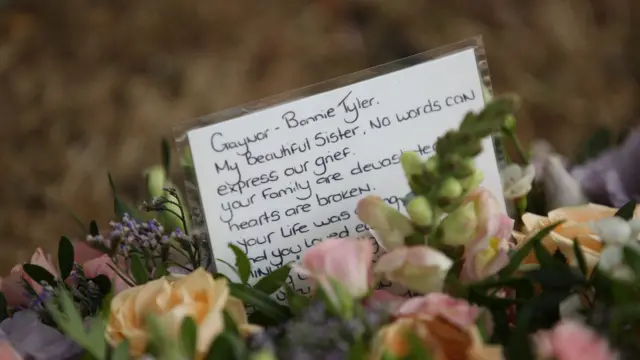 Gaynor - Bonnie Tyler.
My Beautiful Sister. No words can
express our grief.
your Family are devas
hearts are broken.
your Life was
and you Loved